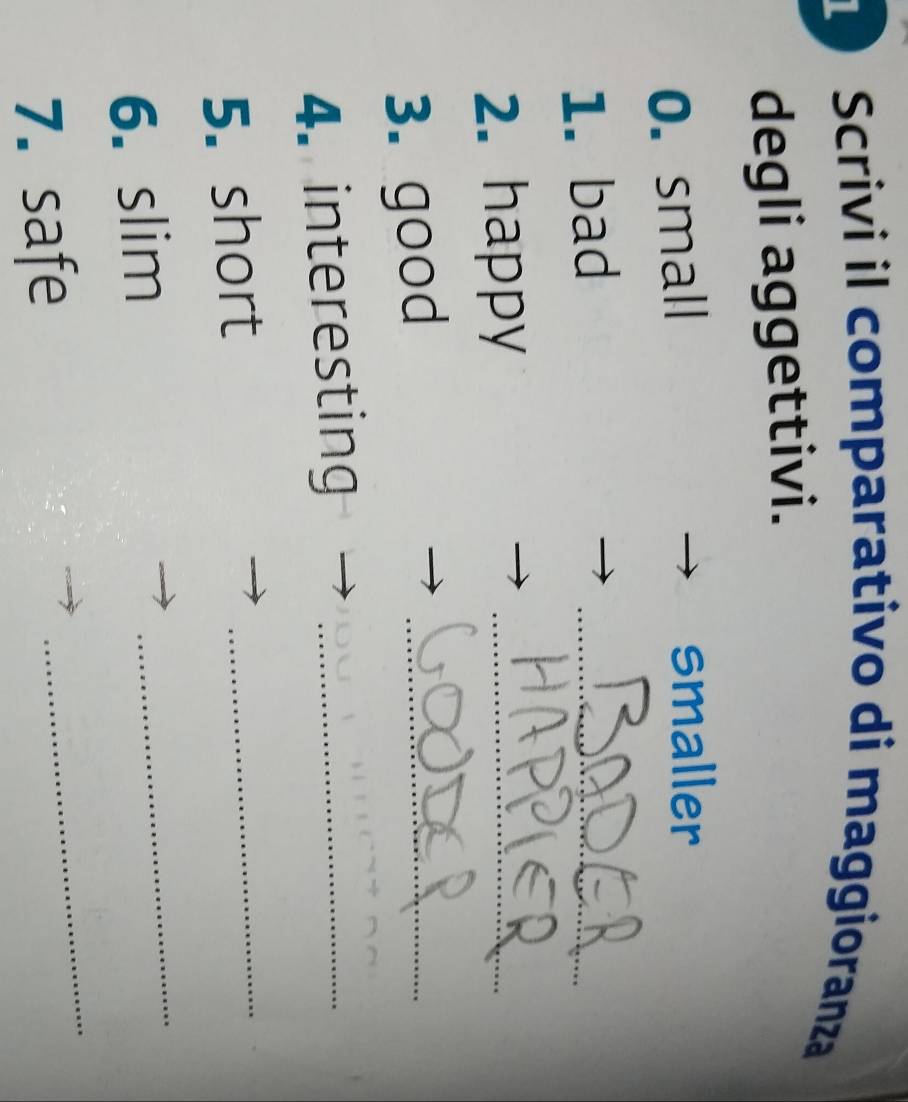 1 Scrivi il comparativo di maggioranza
degli aggettivi.
0. small → smaller
1. bad → BADER
2. happy → HAPPIER
3. good → GOODER
4. interesting →
5. short →
6. slim →
7. safe →